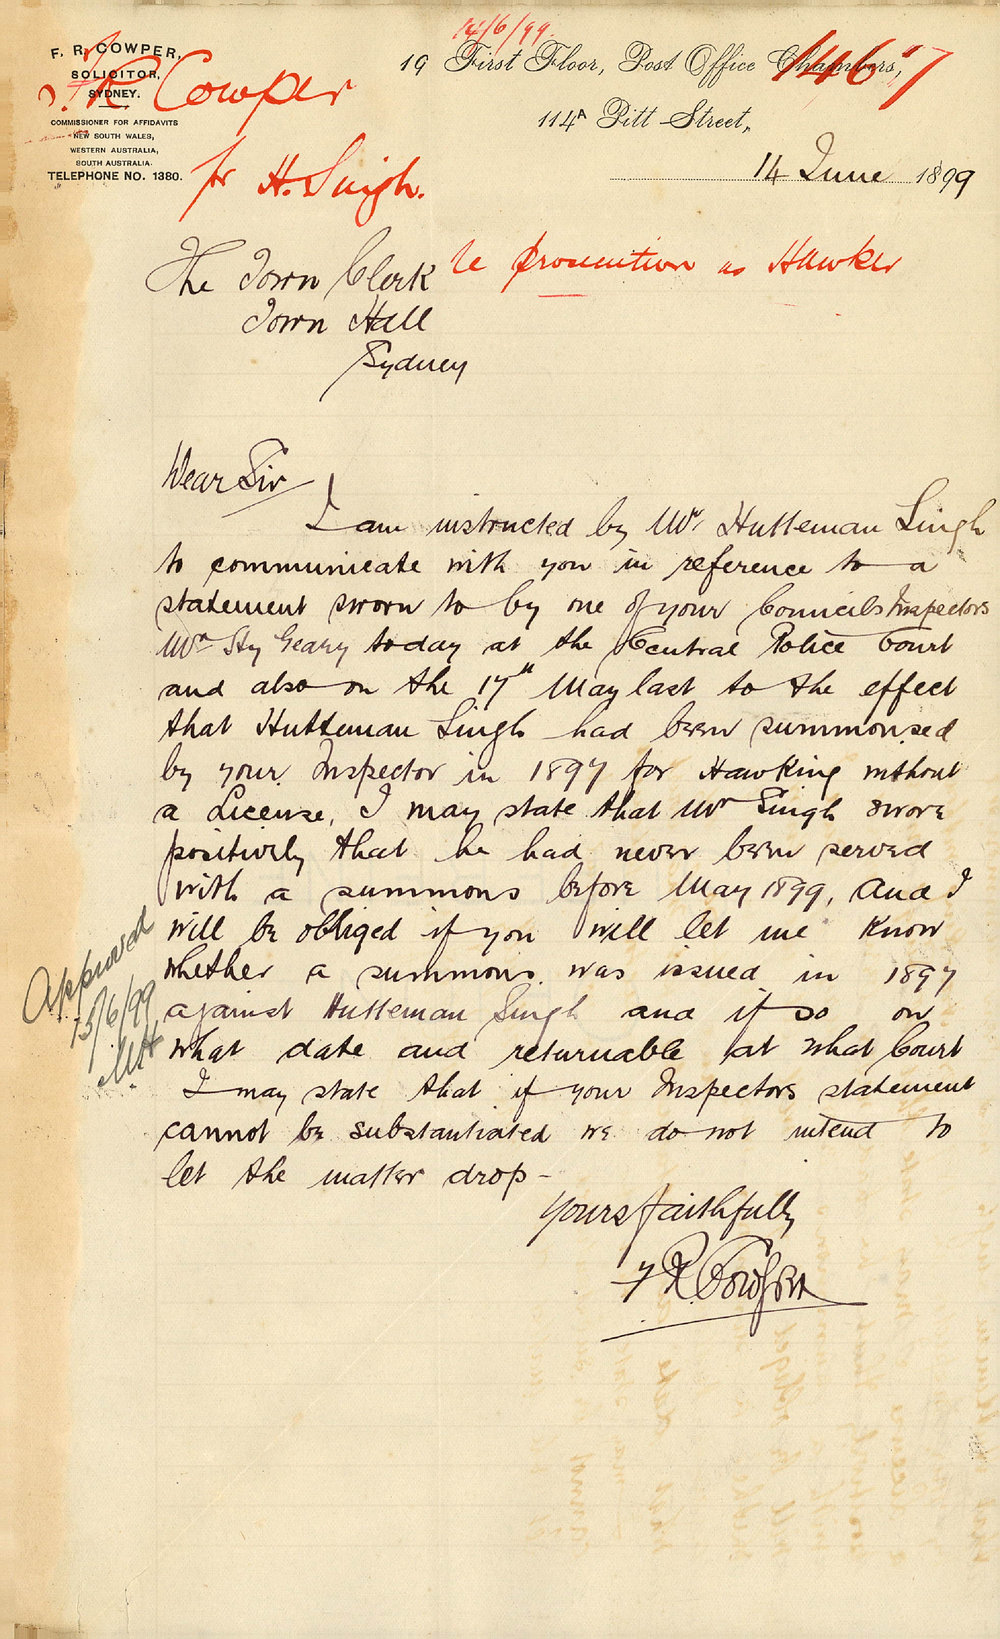 14/6/99.
F. R. COWPER,
SOLICITOR,
SYDNEY.
COMMISSIONER FOR AFFIDAVITS
NEW SOUTH WALES,
WESTERN AUSTRALIA,
SOUTH AUSTRALIA.
TELEPHONE NO. 1380.
F. R Cowper
for H. Singh.
19 First Floor, Post Office Chambers,
114A Pitt Street,
14 June 1899
re prosecution as Hawker
The Town Clerk
Town Hall
Sydney
Dear Sir
I am instructed by Mr Hutteman Singh
to communicate with you in reference to a
statement sworn to by one of your Councils Inspectors
Mr Hy Geary today at the Central Police Court
and also on the 17th May last to the effect
that Hutteman Singh had been summonsed
by your Inspector in 1897 for Hawking without
a License, I may state that Mr Singh swore
positively that he had never been served
with a summons before May 1899, and I
will be obliged if you will let me know
whether a summons was issued in 1897
against Hutteman Singh and if so on
what date and returnable at what Court
I may state that if your Inspectors statement
cannot be substantiated we do not intend to
let the matter drop -
Yours faithfully
F R Cowper
Approved
15/6/99